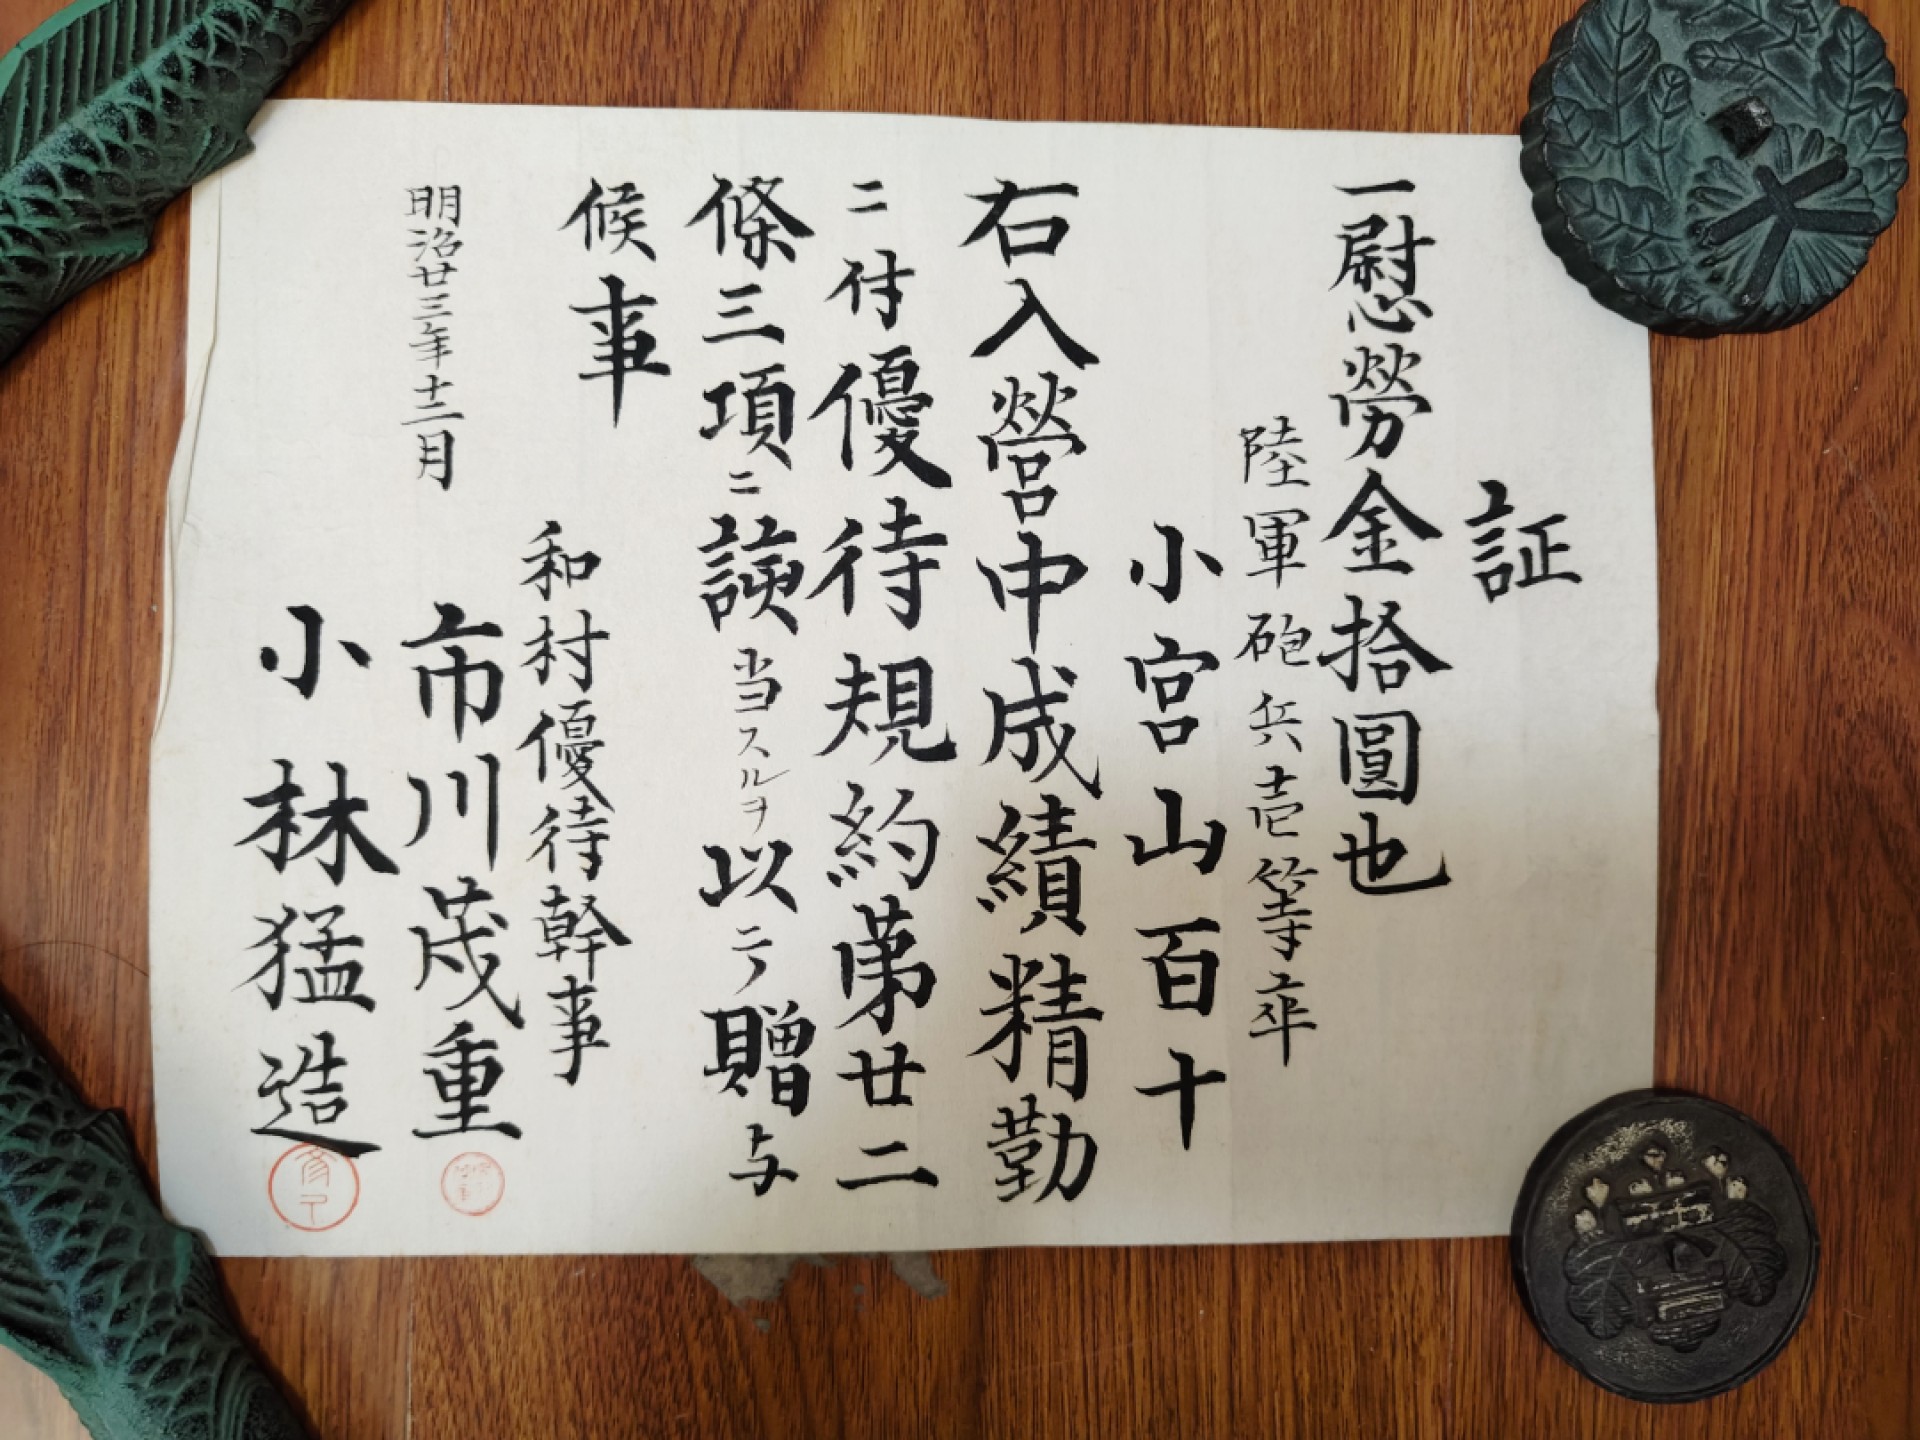 証
一慰勞金拾圓也
陸軍砲兵壱等卒
小宮山百十
右入営中成績精勤
ニ付優待規約第廿二
條三項ニ該当スルヲ以テ贈与
候事
明治廿三年十二月
和村優待幹事
市川茂重
小林猛造